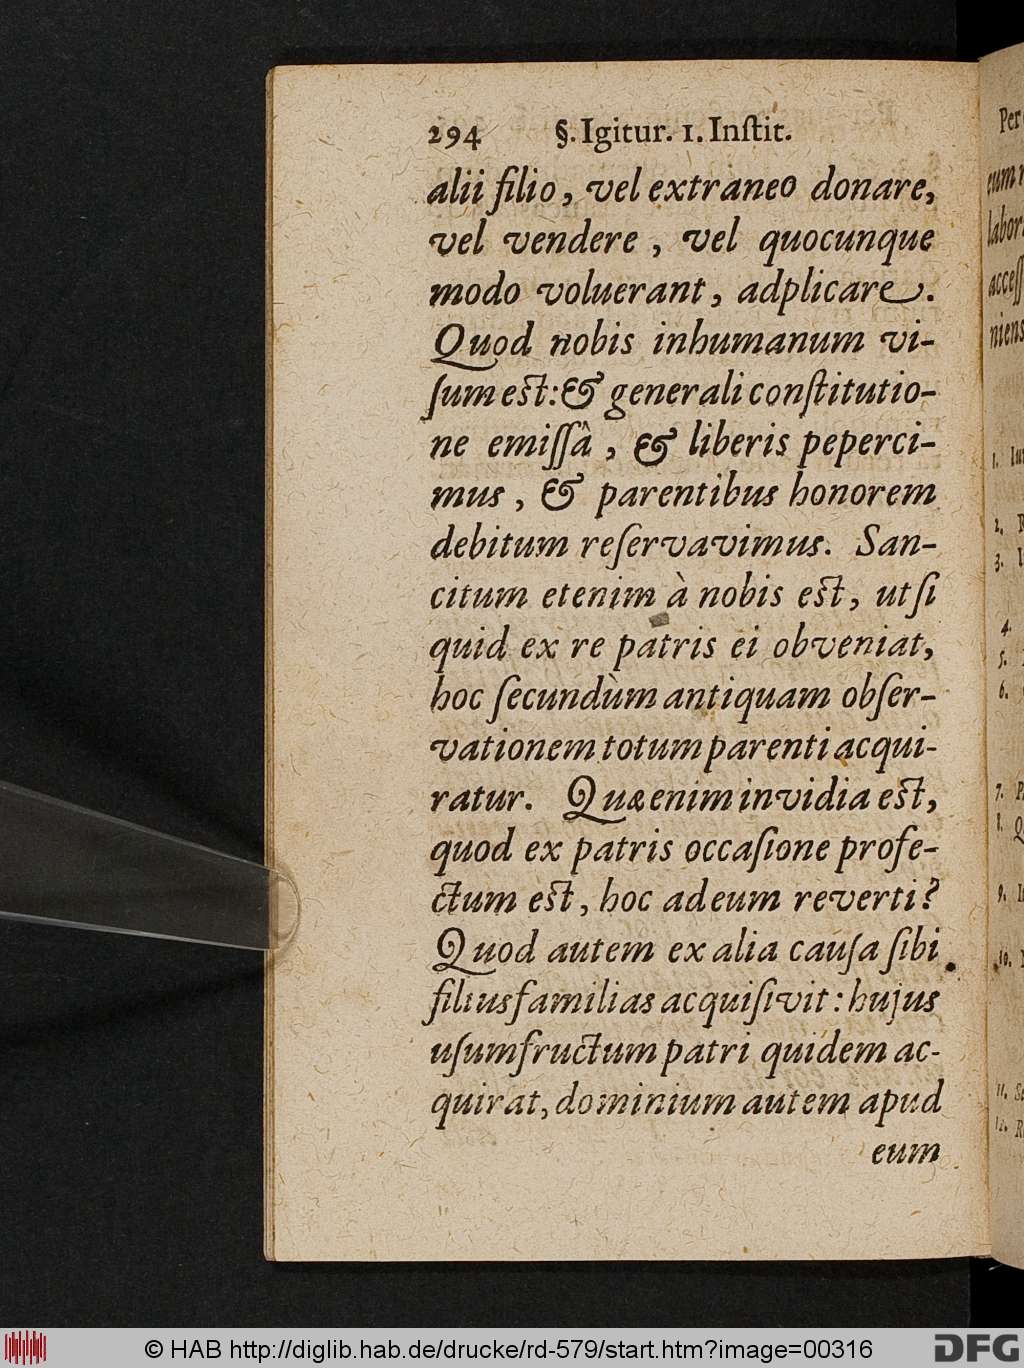 294 §. Igitur. 1. Inſtit.
alii filio, vel extraneo donare,
vel vendere, vel quocunque
modo voluerant, adplicare.
Quod nobis inhumanum vi-
ſum eſt: & generali conſtitutio-
ne emiſſâ, & liberis peperci-
mus, & parentibus honorem
debitum reſervavimus. San-
citum etenim à nobis eſt, ut ſi
quid ex re patris ei obveniat,
hoc ſecundùm antiquam obſer-
vationem totum parenti acqui-
ratur. Quæ enim invidia eſt,
quod ex patris occaſione profe-
ctum eſt, hoc ad eum reverti?
Quod autem ex alia cauſa ſibi
filiusfamilias acquiſivit: hujus
uſumfructum patri quidem ac-
quirat, dominium autem apud
eum
Per
labor
niens
1.
2.
3.
4.
5.
6.
7.
8.
9.
10.
11.
12.
© HAB http://diglib.hab.de/drucke/rd-579/start.htm?image=00316
DFG